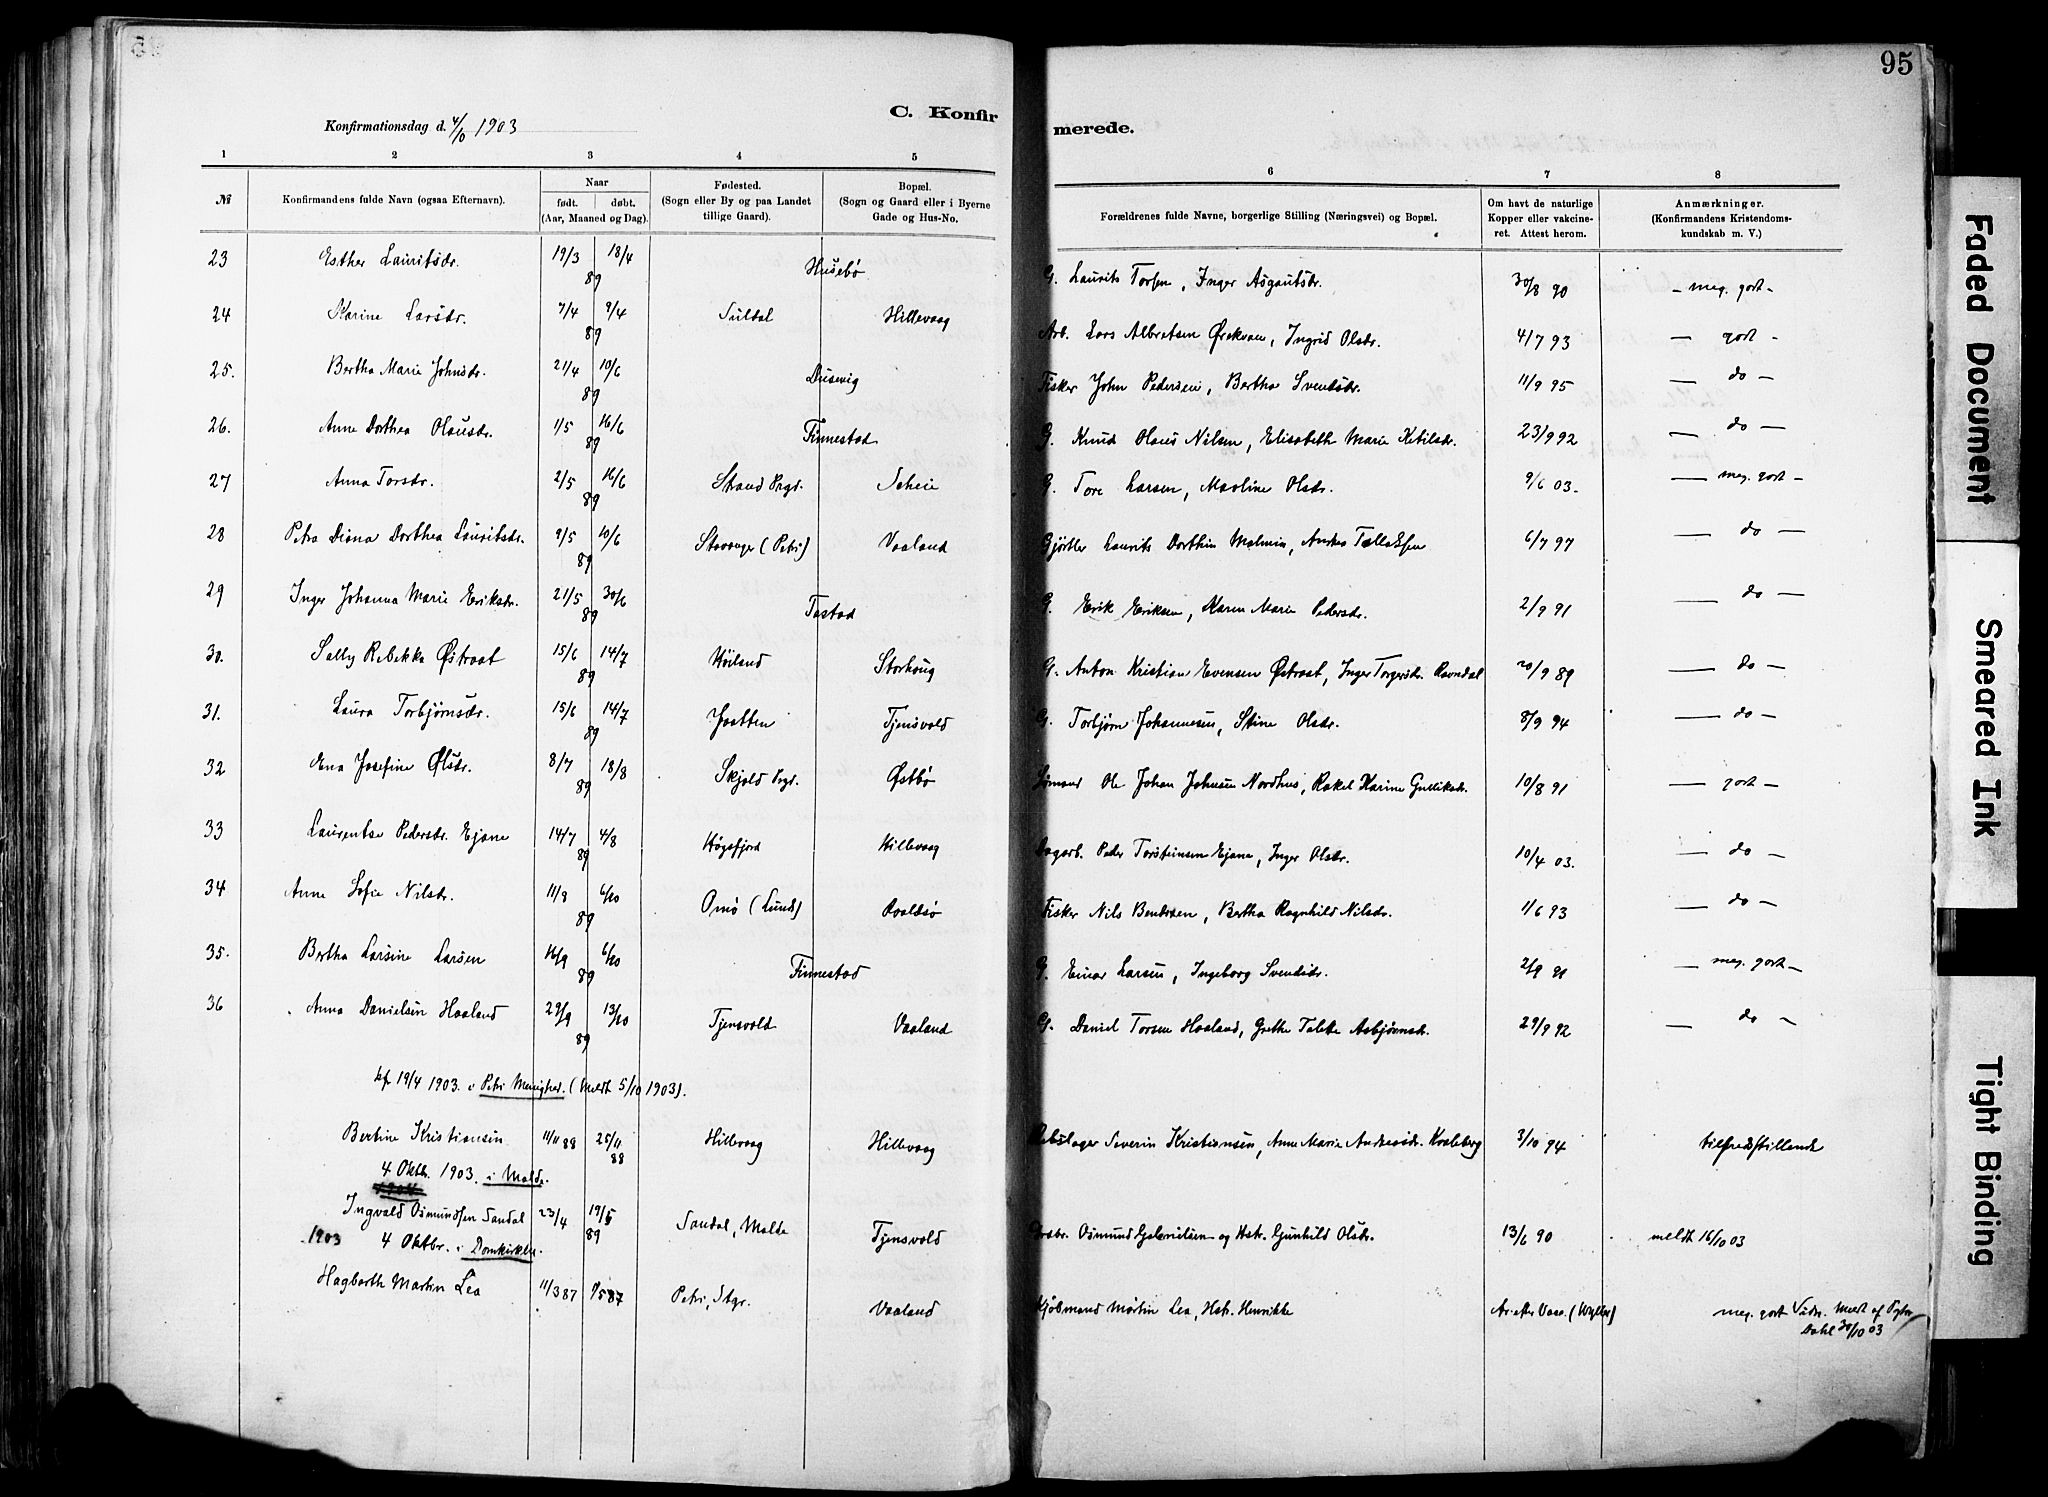 95
C. Konfirmerede.
Konfirmationsdag d. 4/10 1903
1 2 3 4 5 6 7 8
№ Konfirmandens fulde Navn (ogsaa Efternavn). Naar født. døbt. (Aar, Maaned og Dag). Fødested. (Sogn eller By og paa Landet tillige Gaard). Bopæl. (Sogn og Gaard eller i Byerne Gade og Hus-No. Forældrenes fulde Navne, borgerlige Stilling (Næringsvei) og Bopæl. Om havt de naturlige Kopper eller vakcineret. Attest herom. Anmærkninger. (Konfirmandens Kristendomskundskab m. V.)
23 Esther Lauritsdr. 19/3 18/4 89 Husebø G. Laurits Torsen, Inger Asgautsdr. 30/8 90 - meg. godt -
24 Karine Larsdr. 7/4 9/4 89 Suldal Hillevaag Arb. Lars Albretsen Ørekvam, Ingrid Olsdr. 4/7 93 — godt -
25. Bertha Marie Johnsdr. 21/4 10/6 89 Dusevig Fisker John Pedersen, Bertha Svendsdr. 11/9 95 — do —
26. Anne Dorthea Olausdr. 1/5 16/6 89 Finnestad G. Knud Olaus Nilsen, Elisabeth Marie Ketilsdr. 23/9 92 — do —
27 Anna Torsdr. 2/5 16/6 89 Strand Prgd. Scheie G. Tore Larsen, Maoline Olsdr. 9/6 03. — meg. godt -
28 Petra Diana Dorthea Lauritsdr. 9/5 10/6 89 Stavanger (Petri) Vaaland Gjørtler Laurits Dorthin Malmin, Andrea Tollaksen 6/7 97 — do —
29 Inger Johanna Marie Eriksdr. 21/5 30/6 89 Tastad G. Erik Eriksen, Maren Marie Pedersdr. 2/9 91 — do —
30. Sally Rebekka Østraat 15/6 14/7 89 Høiland Storhoug G. Anton Kristian Evensen Østraat, Inger Torgersdr. Ravndal 20/9 89 — do —
31. Laura Torbjørnsdr. 15/6 14/7 89 Jaatten Tjensvold G. Torbjørn Johannesen, Stine Olsdr. 8/9 94 — do —
32 Ena Josefine Olsdr. 8/7 18/8 89 Skjold Prgd. Østbø Sømand Ole Johan Johnsen Nordhus, Rakel Karine Gulliksdr. 10/8 91 — godt —
33 Laurentse Pedersdr. Ejane 14/7 4/8 89 Høgsfjord Hillevaag Dagarb. Peder Torsteinsen Ejane, Inger Olsdr. 10/4 03. — do —
34 Anne Sofie Nilsdr. 11/8 6/10 89 Omø (Lunds) Roaldsø Fisker Nils Bendixen, Bertha Ragnhild Nilsdr. 1/6 93 — do —
35. Bertha Larsine Larsen 16/9 6/10 89 Finnestad G. Einar Larsen, Ingeborg Svendsdr. 2/9 91 — meg. godt —
36 Anna Danielsen Haaland 29/9 13/10 89 Tjensvold Vaaland G. Daniel Torsen Haaland, Grethe Talette Asbjørnsdr. 29/9 92 — do —
kf 19/4 1903. i Petri Menighed. (Meldt 5/10 1903).
Bertine Kristiansen 11/11 88 25/11 88 Hillevaag Hillevaag Rebslager Severin Kristiansen, Anne Marie Andreasdr. Kvaleberg 3/10 94 tilfredsstillende
4 Oktb. 1903. i Malde.
Ingvald Osmundsen Sandal 23/4 19/5 89 Sandal, Malde Tjensvold Osmund Gabrielsen og Hstr. Gunhild Olsdr. 13/6 90 meldt 16/10 03
1903 4 Oktbr. i Domkirken.
Hagbarth Martin Lea 11/3 87 1/5 87 Petri, Stgr. Vaaland Kjøbmand Martin Lea, Hstr. Henrikke meg. godt Meldt af
Dahl 30/10 03
Faded Document
Smeared Ink
Tight Binding